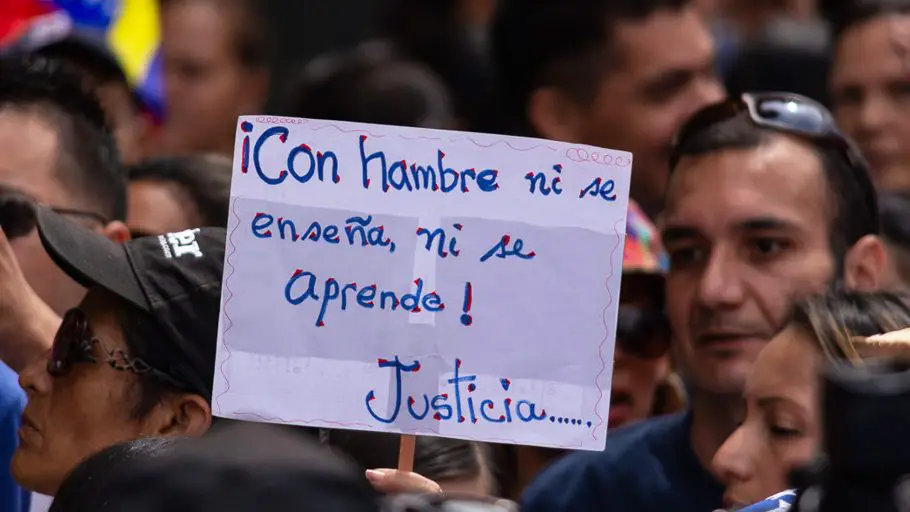 ¡Con hambre ni se
enseña, ni se
aprende!
Justicia......